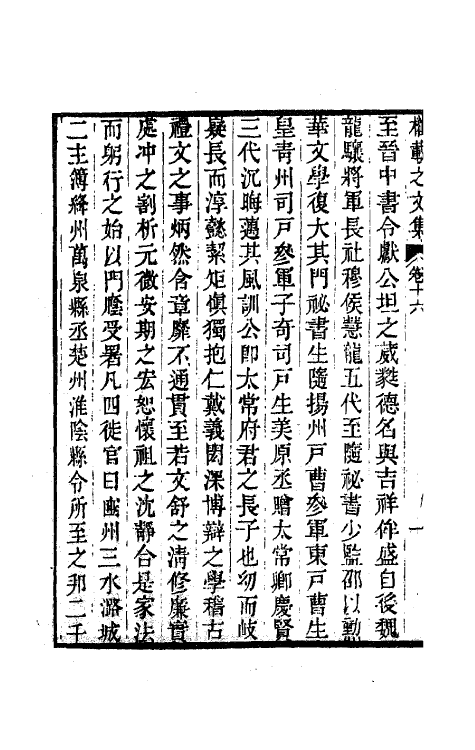 權載之文集 卷十六 一
至晉中書令獻公坦之葳蕤德名與吉祥侔盛自後魏
龍驤將軍長社穆侯慧龍五代至隨祕書少監邵以勳
華文學復大其門祕書生隨揚州戶曹參軍東戶曹生
皇青州司戶參軍子奇司戶生美原丞贈太常卿慶賢
三代沉晦藹其風訓公卽太常府君之長子也幼而岐
嶷長而淳懿絜矩愼獨抱仁戴義閎深博辯之學稽古
禮文之事炳然含章靡不通貫至若文舒之清修廉實
處冲之剖析元微安期之宏恕懷祖之沈靜合是家法
而躬行之始以門廕受署凡四徙官曰豳州三水潞城
二主簿絳州萬泉縣丞楚州淮陰縣令所至之邦二千